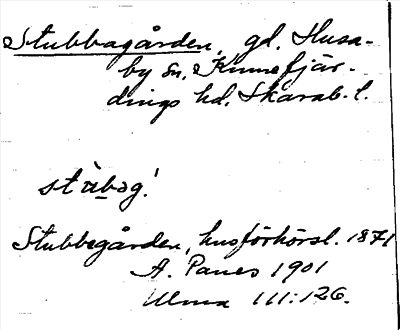 Stubbagården, gd. Husa-
by sn, Kinnefjär-
dings hd, Skarab. l.
Stubbegården, husförhörsl. 1871
A. Panes 1901
111:126.